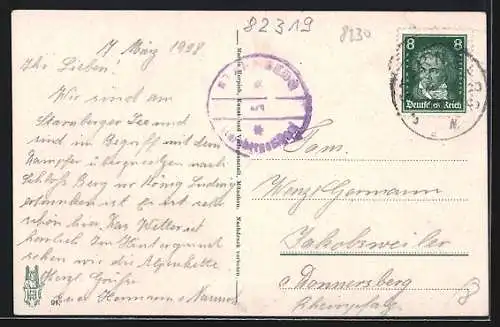 82319
8230
17 März 1928
Ihr Lieben!
Wir sind am
Starnberger See und
sind im Begriff mit dem
Dampfer überzusetzen nach
Schloß Berg wo König Ludwig
ertrunken ist. Es ist sehr
schön hier. Das Wetter ist
herrlich. Im Hintergrund
sehen wir die Alpenkette
Herzl. Grüße
Hermann u
91
Nachdruck verboten
8 8
Deutsches Reich
Fam.
Wenz. Germann
Jakobsweiler
a Donnersberg
Rheinpfalz